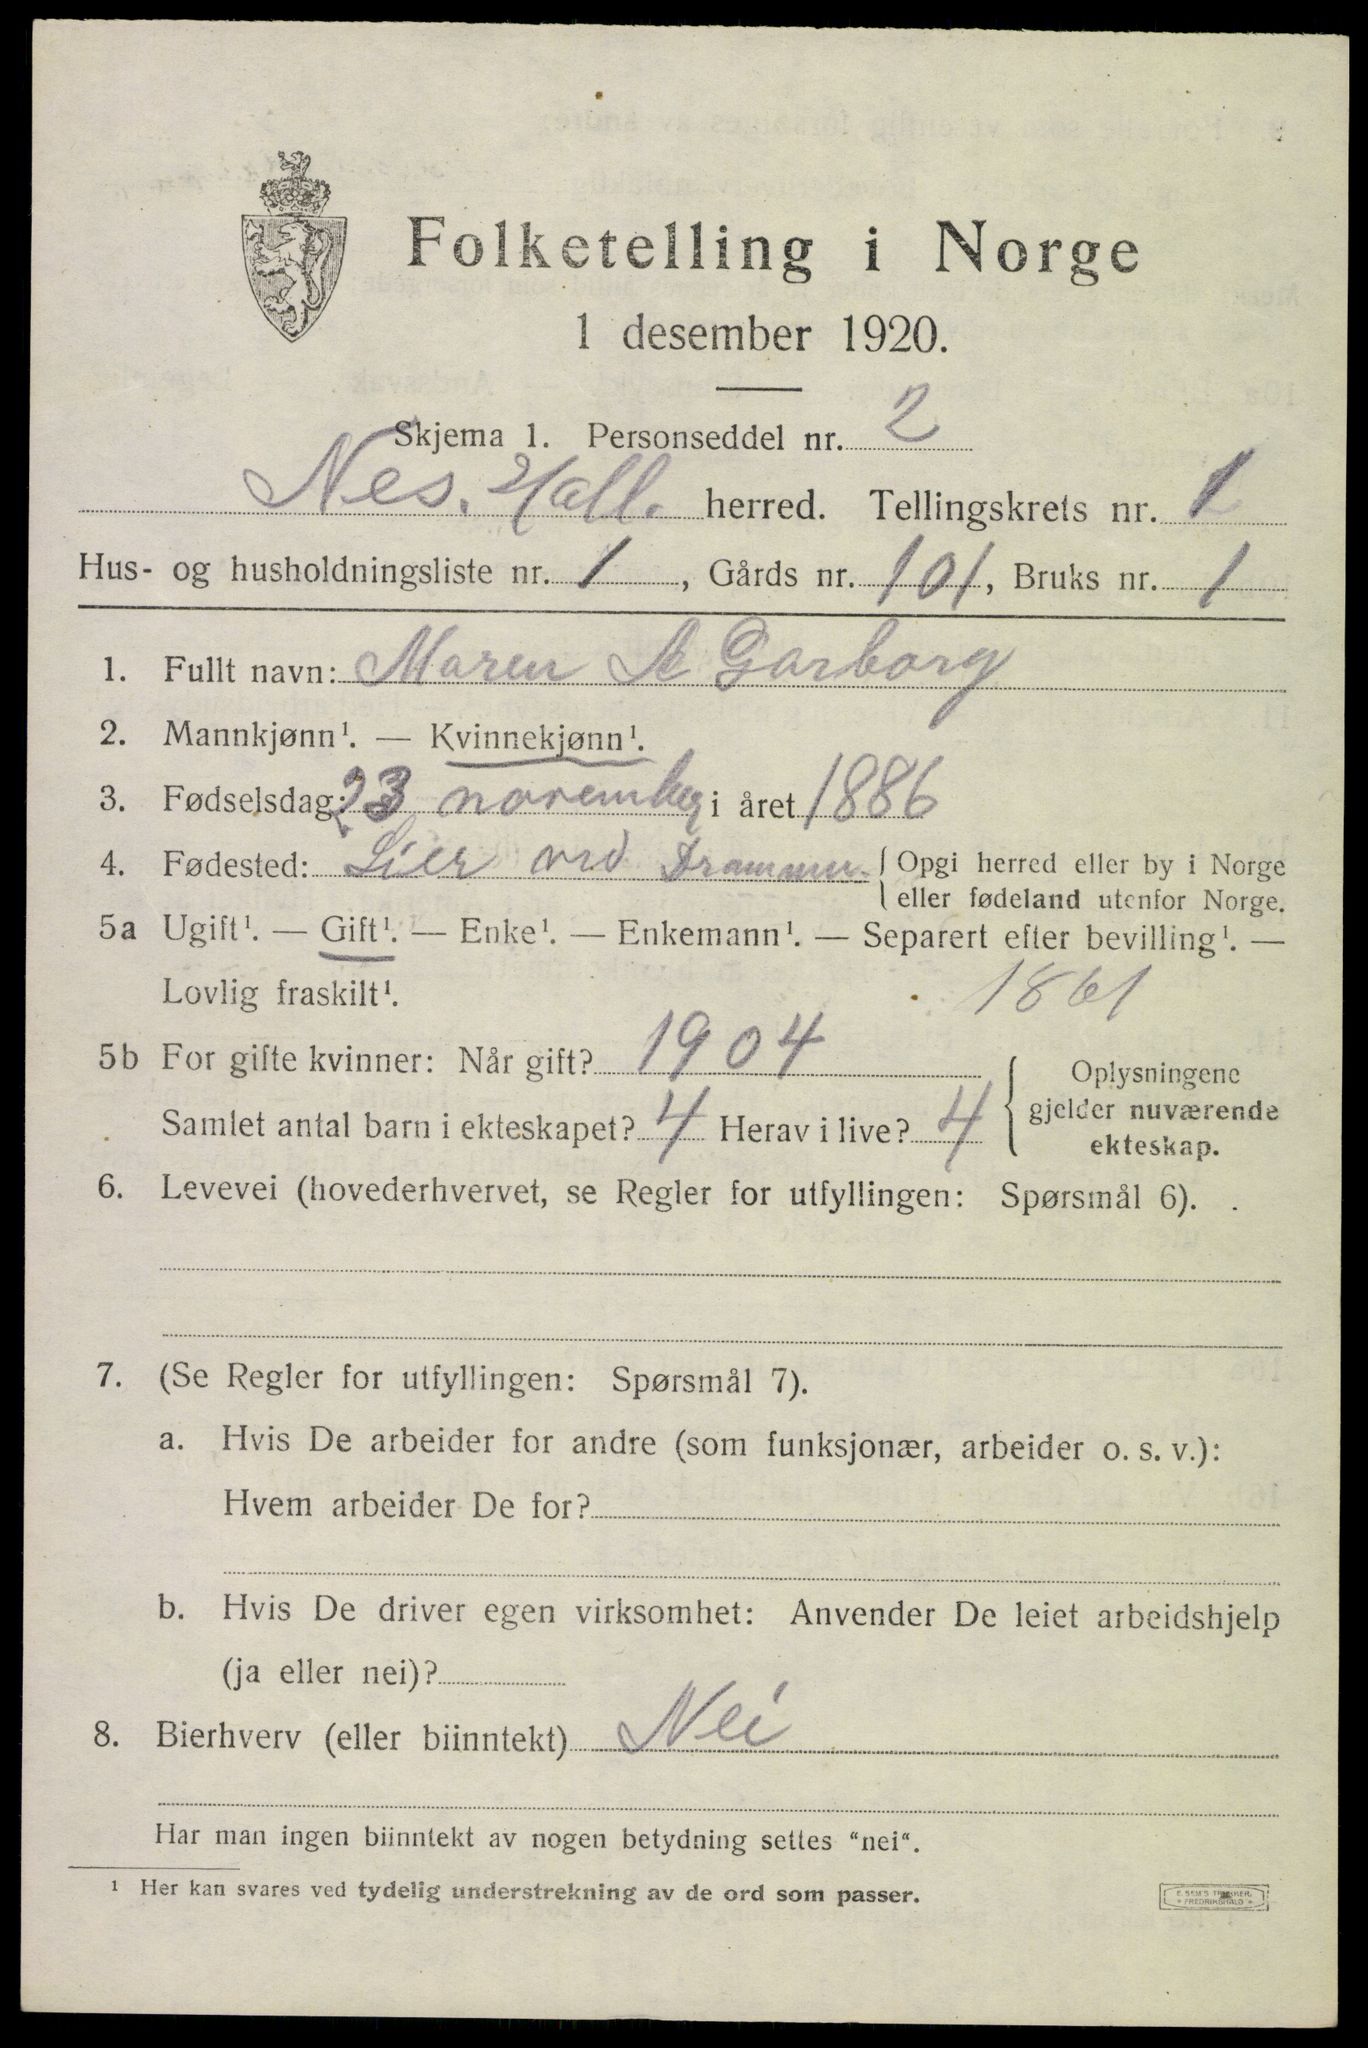 Folketelling i Norge
1 desember 1920.
Skjema 1. Personseddel nr. 2
Nes. Hall. herred. Tellingskrets nr. 1
Hus- og husholdningsliste nr. 1, Gårds nr. 101, Bruks nr. 1
1. Fullt navn: Maren A Garborg
2. Mannkjønn¹. — Kvinnekjønn¹.
3. Fødselsdag: 23 november i året 1886
4. Fødested: Lier ved Drammen {Opgi herred eller by i Norge
eller fødeland utenfor Norge.
5a Ugift¹. — Gift¹. — Enke¹. — Enkemann¹. — Separert efter bevilling¹. —
Lovlig fraskilt¹. 1861
5b For gifte kvinner: Når gift? 1904
Samlet antal barn i ekteskapet? 4 Herav i live? 4
{Oplysningene
gjelder nuværende
ekteskap.
6. Levevei (hovederhvervet, se Regler for utfyllingen: Spørsmål 6).
7. (Se Regler for utfyllingen: Spørsmål 7).
a. Hvis De arbeider for andre (som funksjonær, arbeider o. s. v.):
Hvem arbeider De for?
b. Hvis De driver egen virksomhet: Anvender De leiet arbeidshjelp
(ja eller nei)?
8. Bierhverv (eller biinntekt) Nei
Har man ingen biinntekt av nogen betydning settes "nei".
¹ Her kan svares ved tydelig understrekning av de ord som passer.
E. SEM'S TRYKKERI,
FREDRIKSHALD